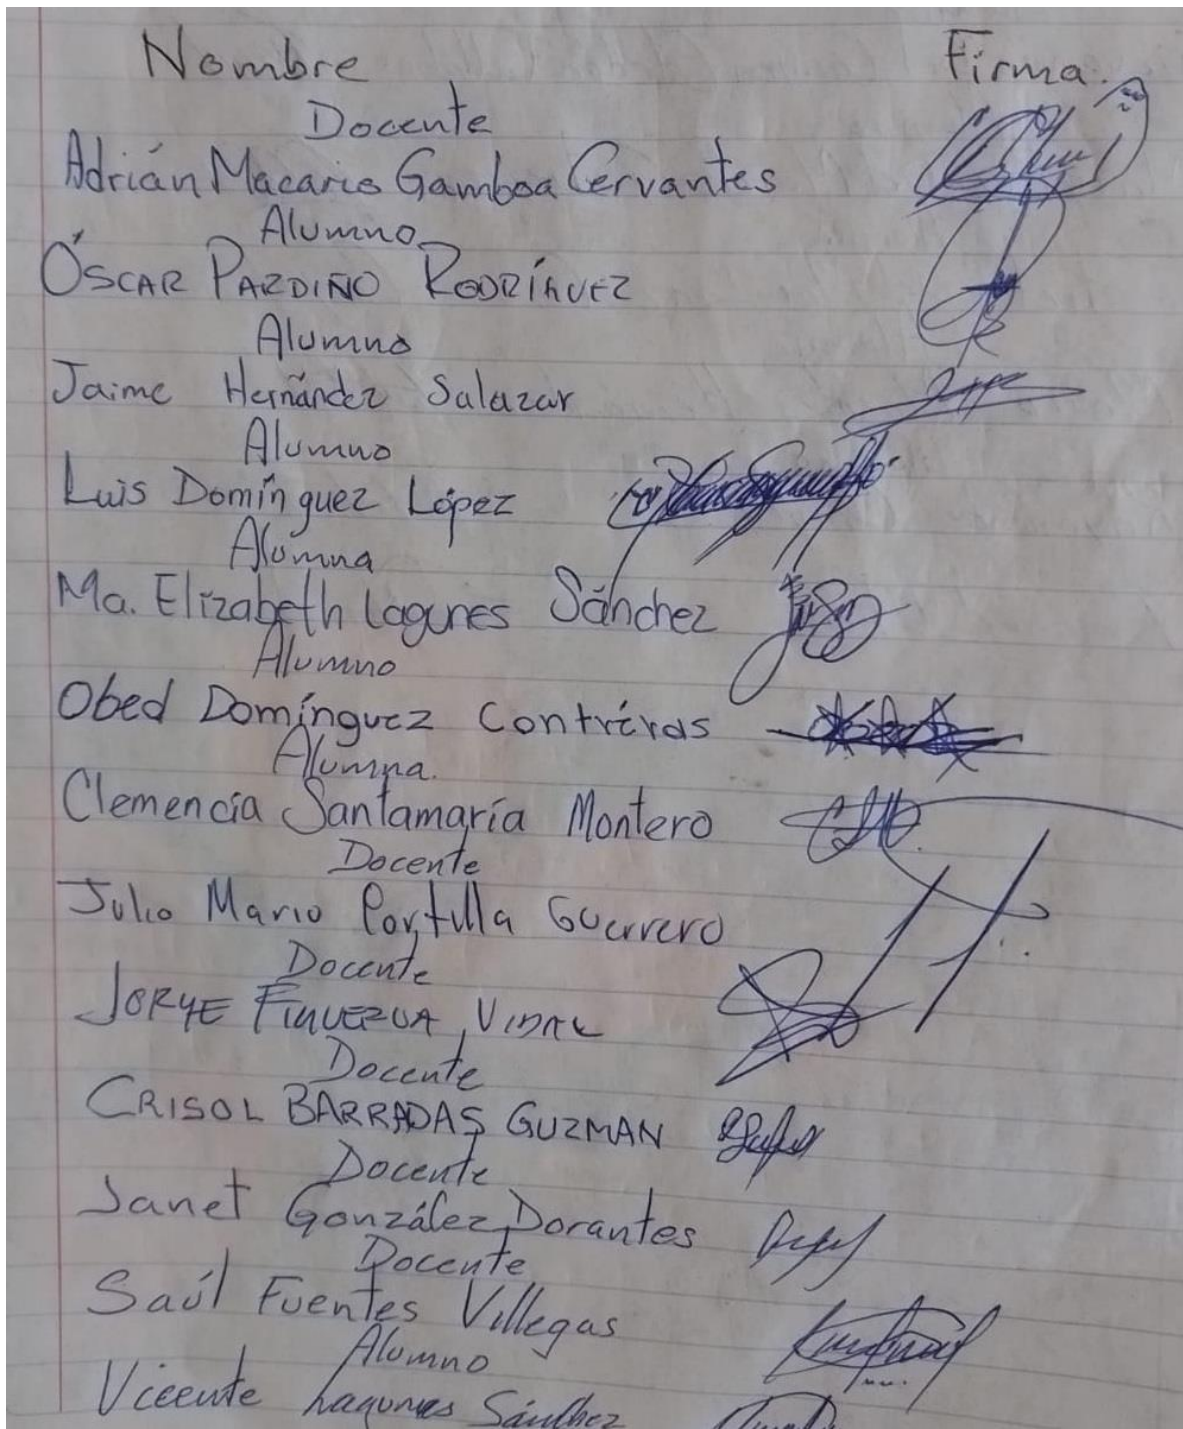 Nombre Firma.
Docente
Adrián Macario Gamboa Cervantes
Alumno
ÓSCAR PARDIÑO RODRÍGUEZ
Alumno
Jaime Hernández Salazar
Alumno
Luis Domínguez López
Alumna
Ma. Elizabeth Lagunes Sánchez
Alumno
Obed Domínguez Contreras
Alumna.
Clemencia Santamaría Montero
Docente
Julio Mario Portilla Guerrero
Docente
JORGE FIGUEROA VIDAL
Docente
CRISOL BARRADAS GUZMAN
Docente
Janet González Dorantes
Docente
Saúl Fuentes Villegas
Alumno
Vicente Lagunes Sánchez